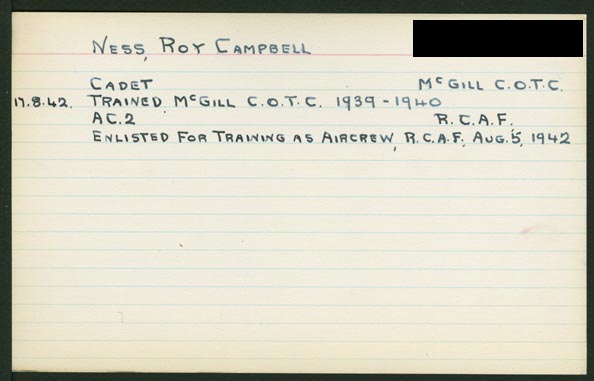 NESS, ROY CAMPBELL
CADET McGILL C.O.T.C.
17.8.42. TRAINED McGILL C.O.T.C. 1939-1940
AC.2 R.C.A.F.
ENLISTED FOR TRAINING AS AIRCREW, R.C.A.F., AUG. 5, 1942